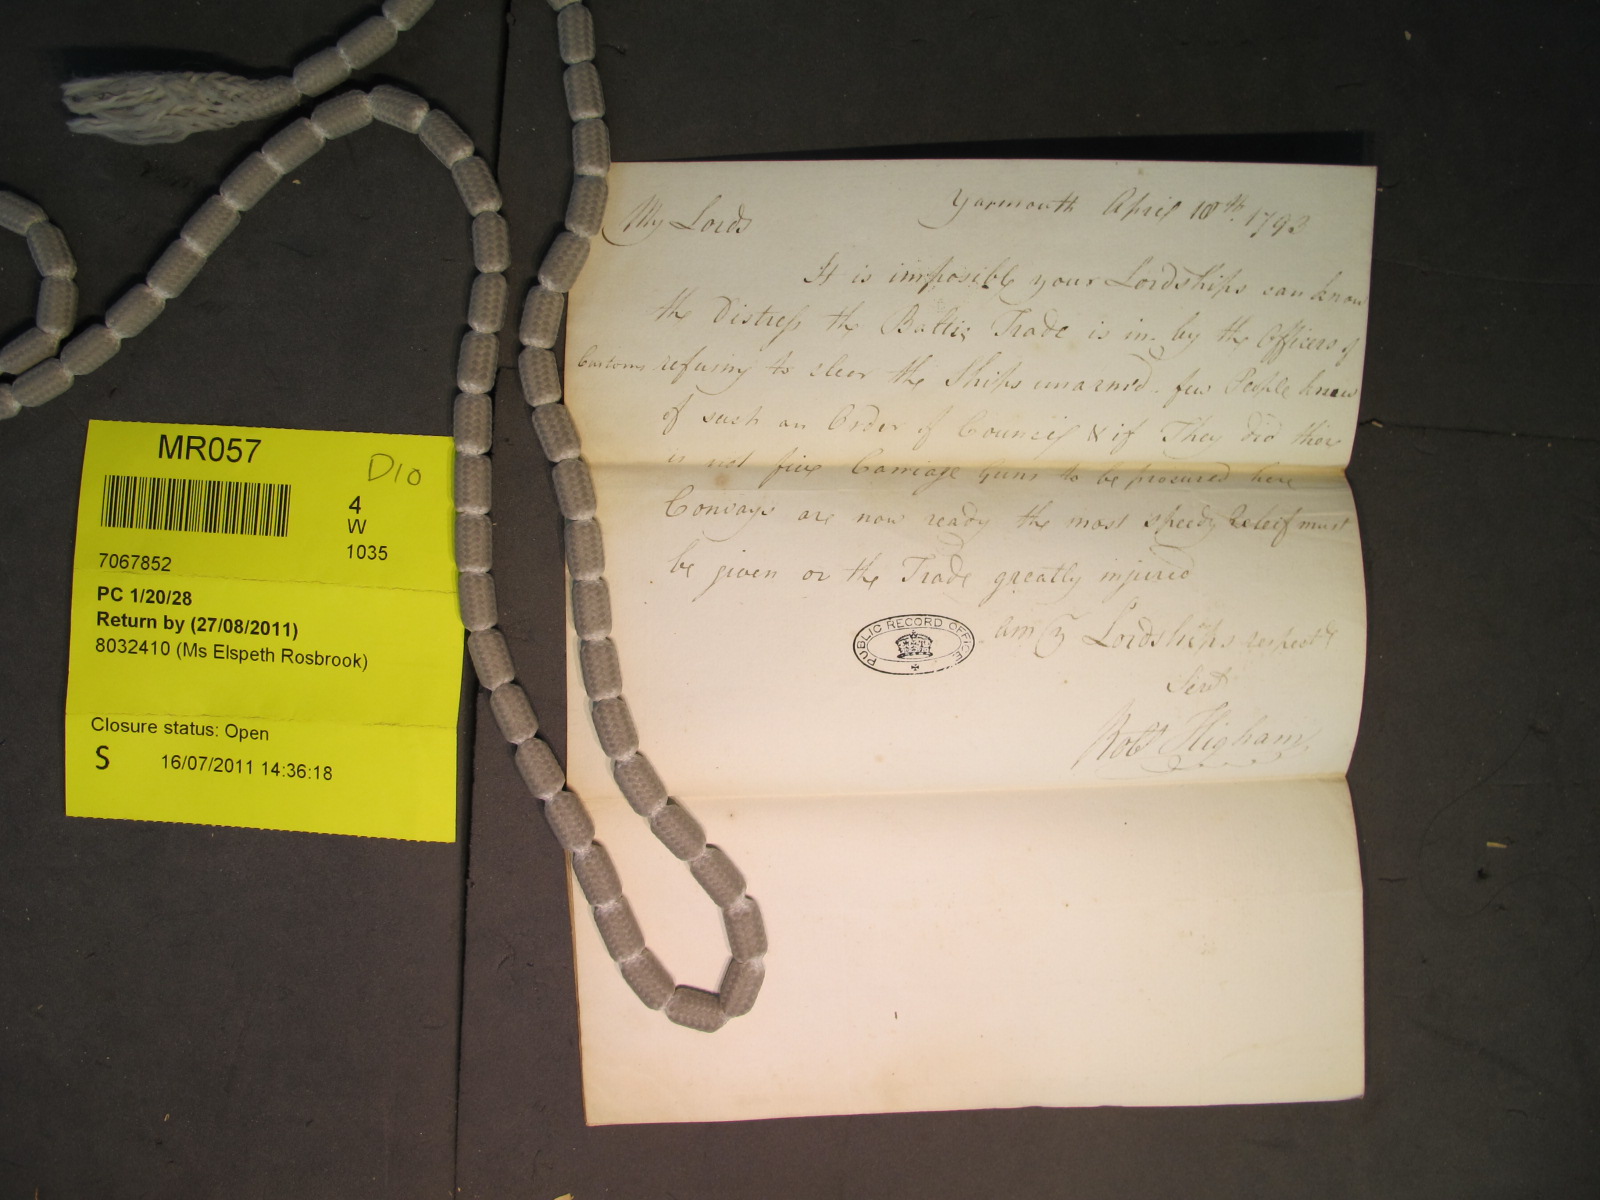 MR057
D10
4
W
1035
7067852
PC 1/20/28
Return by (27/08/2011)
8032410 (Ms Elspeth Rosbrook)
Closure status: Open
S 16/07/2011 14:36:18
Yarmouth April 10th 1793
My Lords
It is imposible your Lordships can know
the Distress the Baltic Trade is in by the Officers of
Customs refusing to clear the Ships unarmd. few People knew
of such an Order of Council & if They did there
is not five Carriage Guns to be procured here
Convoys are now ready the most speedy Releif must
be given or the Trade greatly injured
am yr Lordships respectd
Servt
Robt Higham
PUBLIC RECORD OFFICE